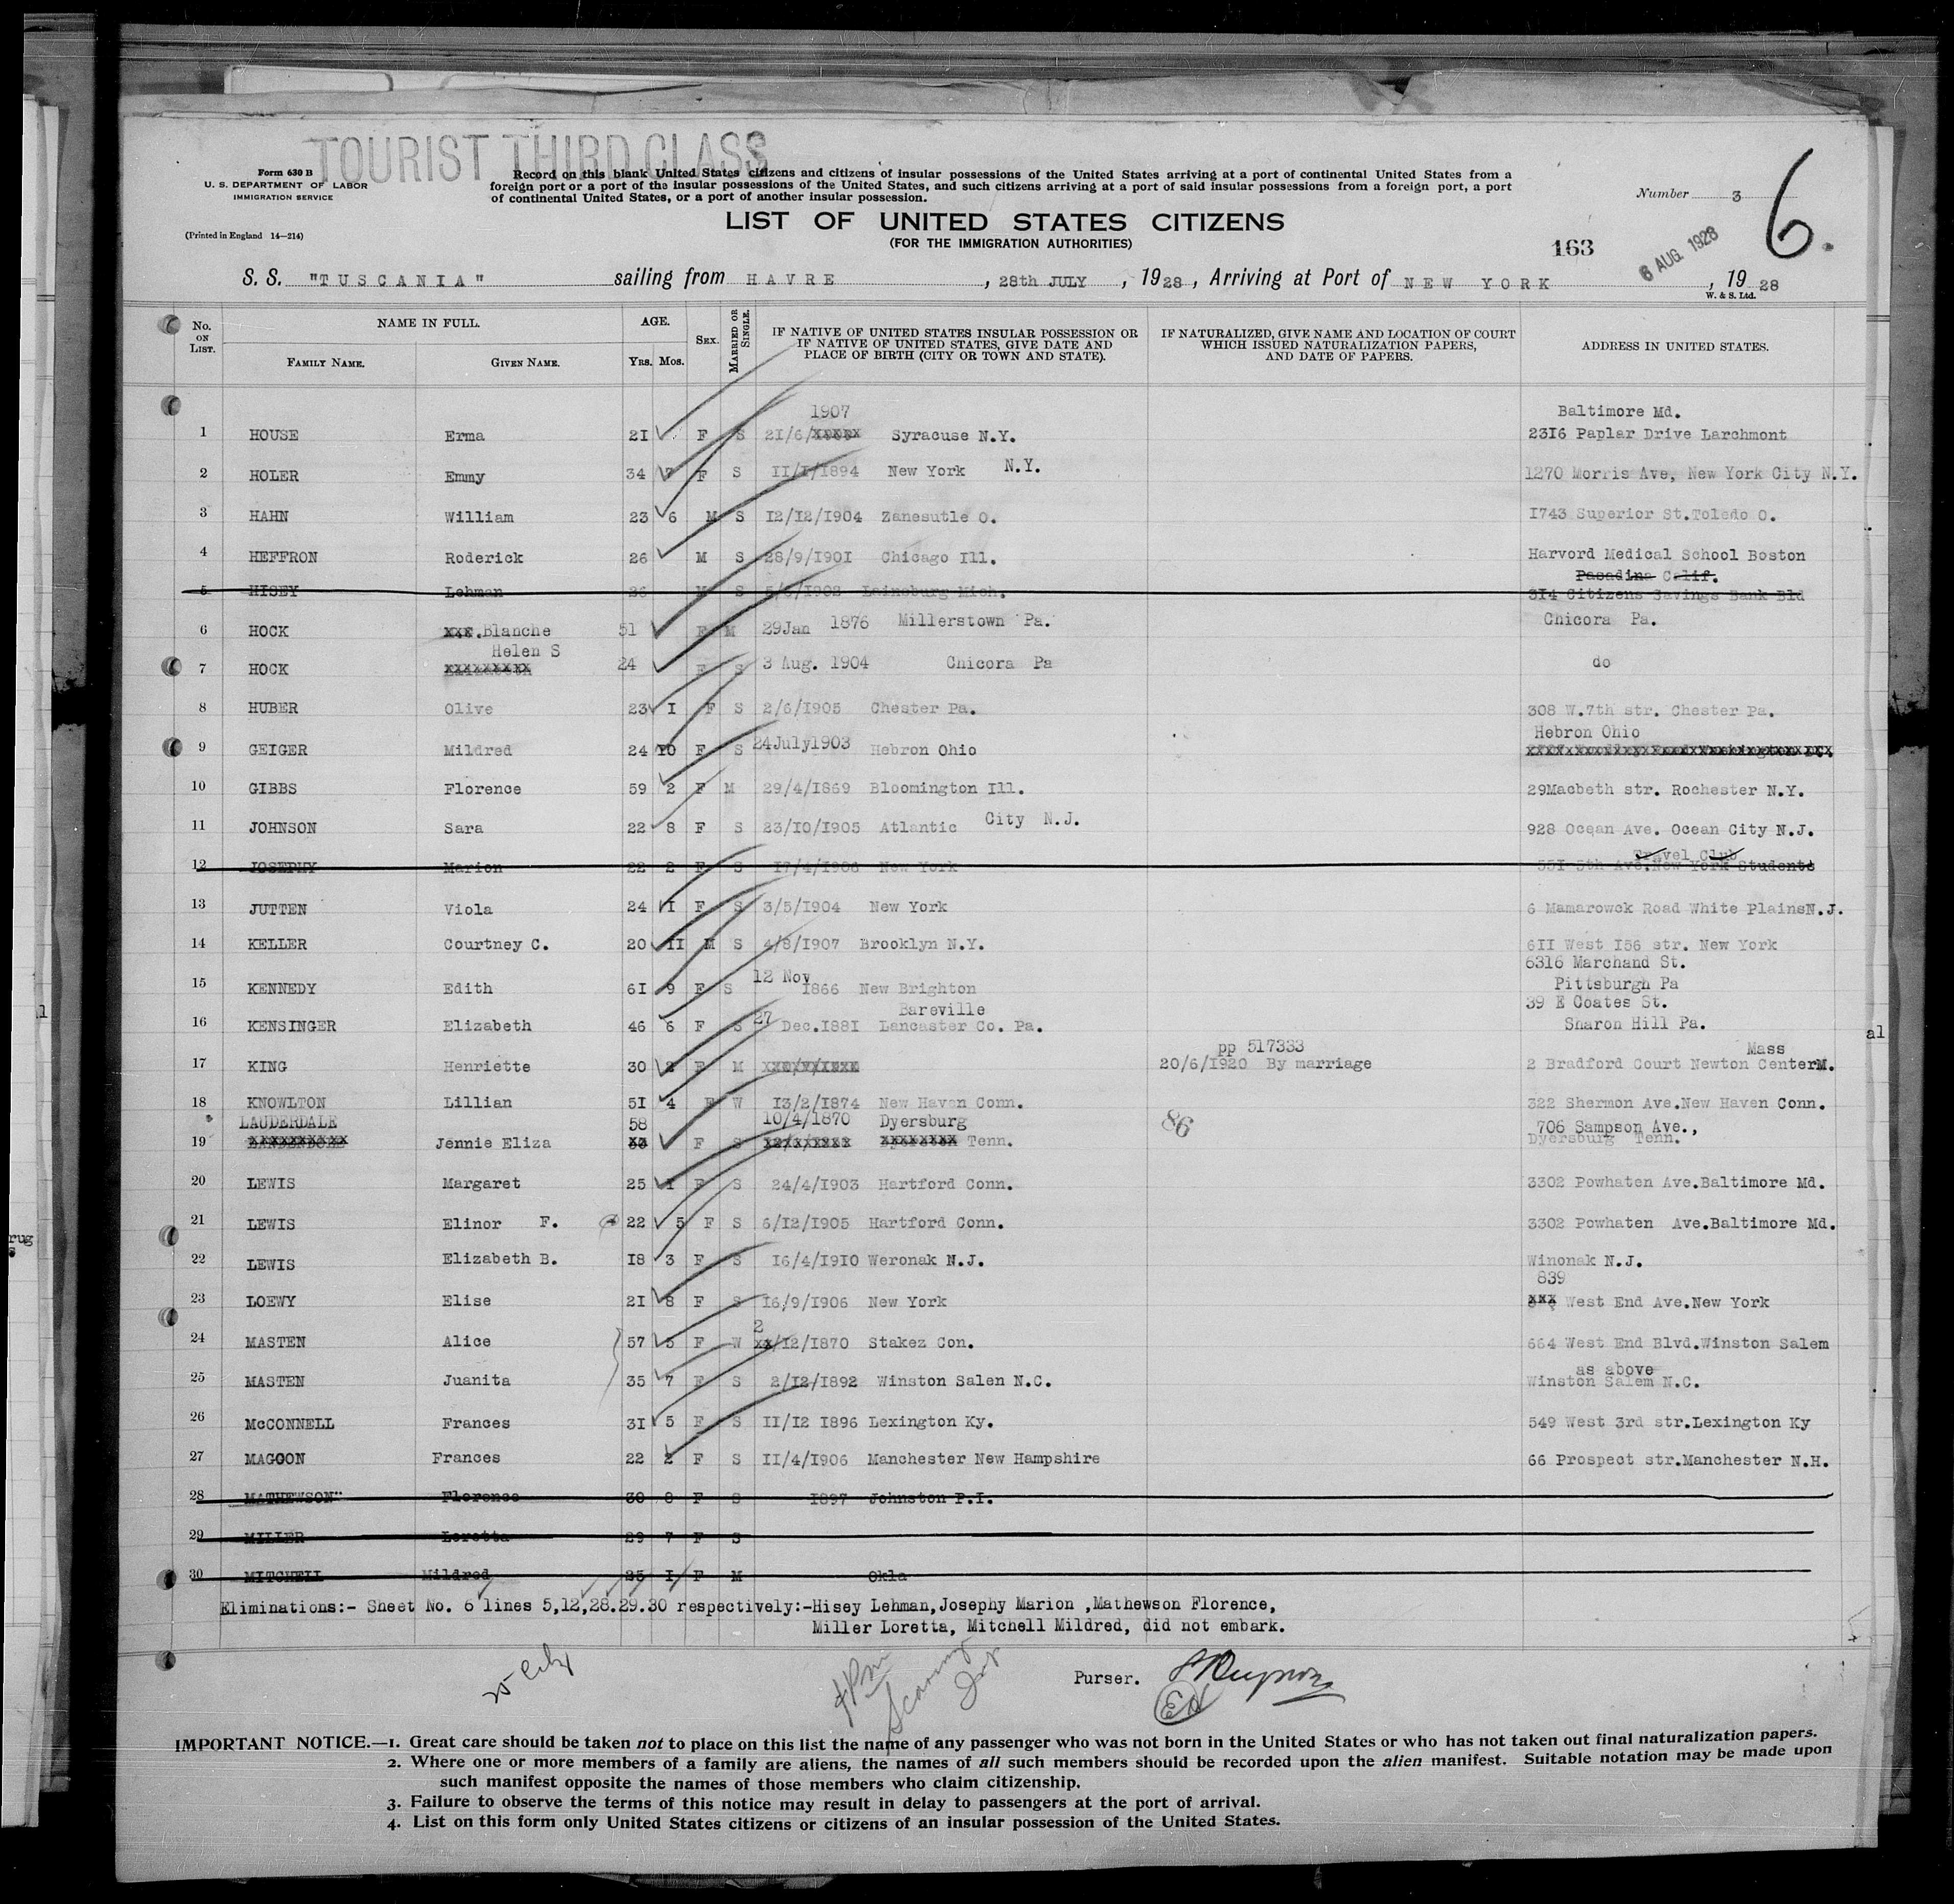 TOURIST THIRD CLASS
Form 630 B
U. S. DEPARTMENT OF LABOR
IMMIGRATION SERVICE
(Printed in England 14—214)
Record on this blank United States citizens and citizens of insular possessions of the United States arriving at a port of continental United States from a
foreign port or a port of the insular possessions of the United States, and such citizens arriving at a port of said insular possessions from a foreign port, a port
of continental United States, or a port of another insular possession.
Number 3
6.
LIST OF UNITED STATES CITIZENS
(FOR THE IMMIGRATION AUTHORITIES)
163
6 AUG 1928
S. S. "TUSCANIA" sailing from HAVRE, 28th JULY, 1928, Arriving at Port of NEW YORK, 1928
W. & S. Ltd.
No. ON LIST.
NAME IN FULL.
FAMILY NAME. GIVEN NAME.
AGE.
Yrs. Mos.
SEX.
MARRIED OR SINGLE.
IF NATIVE OF UNITED STATES INSULAR POSSESSION OR
IF NATIVE OF UNITED STATES, GIVE DATE AND
PLACE OF BIRTH (CITY OR TOWN AND STATE).
IF NATURALIZED, GIVE NAME AND LOCATION OF COURT
WHICH ISSUED NATURALIZATION PAPERS,
AND DATE OF PAPERS.
ADDRESS IN UNITED STATES.
1907 Baltimore Md.
1 HOUSE Erma 21 F S 21/6/xxxxx Syracuse N.Y. 2316 Paplar Drive Larchmont
2 HOLER Emmy 34 7 F S 11/1/1894 New York N.Y. 1270 Morris Ave, New York City N.Y.
3 HAHN William 23 6 M S 12/12/1904 Zanesutle O. 1743 Superior St.Toledo O.
4 HEFFRON Roderick 26 M S 28/9/1901 Chicago Ill. Harvord Medical School Boston
Pasadina Calif.
5 HISEY Lehman 26 M S Lainsburg Mich. 314 Citizens Savings Bank Bld
6 HOCK xxx.Blanche 51 F M 29Jan 1876 Millerstown Pa. Chicora Pa.
Helen S
7 HOCK xxxxxxxxx 24 F S 3 Aug. 1904 Chicora Pa do
8 HUBER Olive 23 1 F S 2/6/1905 Chester Pa. 308 W.7th str. Chester Pa.
Hebron Ohio
9 GEIGER Mildred 24 10 F S 24July1903 Hebron Ohio
10 GIBBS Florence 59 2 F M 29/4/1869 Bloomington Ill. 29Macbeth str. Rochester N.Y.
11 JOHNSON Sara 22 8 F S 23/10/1905 Atlantic City N.J. 928 Ocqan Ave. Ocean City N.J.
Travel Club
12 JOSEPHY Marion 22 2 F S 17/4/1906 New York 551 5th Ave.New York Students
13 JUTTEN Viola 24 1 F S 3/5/1904 New York 6 Mamarowck Road White PlainsN.J.
14 KELLER Courtney C. 20 11 M S 4/8/1907 Brooklyn N.Y. 611 West 156 str. New York
6316 Marchand St.
15 KENNEDY Edith 61 9 F S 12 Nov 1866 New Brighton Pittsburgh Pa
Bareville 39 E Coates St.
16 KENSINGER Elizabeth 46 6 F S 27 Dec.1881 Lancaster Co. Pa. Sharon Hill Pa.
pp 517333 Mass
17 KING Henriette 30 2 F M 20/6/1920 By marriage 2 Bradford Court Newton CenterM.
18 KNOWLTON Lillian 51 4 F W 13/2/1874 New Haven Conn. 322 Shermon Ave.New Haven Conn.
LAUDERDALE 58 10/4/1870 Dyersburg 86 706 Sampson Ave.,
19 xxxxxxxxxx Jennie Eliza xx F S xxxxxxxx Tenn. Dyersburg Tenn.
20 LEWIS Margaret 25 1 F S 24/4/1903 Hartford Conn. 3302 Powhaten Ave.Baltimore Md.
21 LEWIS Elinor F. 22 5 F S 6/12/1905 Hartford Conn. 3302 Powhaten Ave.Baltimore Md.
22 LEWIS Elizabeth B. 18 3 F S 16/4/1910 Weronak N.J. Winonak N.J.
839
23 LOEWY Elise 21 8 F S 16/9/1906 New York xxx West End Ave.New York
2
24 MASTEN Alice 57 5 F W xx/12/1870 Stakez Con. 664 West End Blvd.Winston Salem
as above
25 MASTEN Juanita 35 7 F S 2/12/1892 Winston Salen N.C. Winston Salem N.C.
26 McCONNELL Frances 31 5 F S 11/12 1896 Lexington Ky. 549 West 3rd str.Lexington Ky
27 MAGOON Frances 22 2 F S 11/4/1906 Manchester New Hampshire 66 Prospect str.Manchester N.H.
28 MATHEWSON" Florence 30 8 F S 1897 Johnston P.I.
29 MILLER Loretta 29 7 F S
30 MITCHELL Mildred 25 1 F M Okla
Eliminations:- Sheet No. 6 lines 5,12,28.29.30 respectively:-Hisey Lehman,Josephy Marion ,Mathewson Florence,
Miller Loretta, Mitchell Mildred, did not embark.
Purser.
IMPORTANT NOTICE.—1. Great care should be taken not to place on this list the name of any passenger who was not born in the United States or who has not taken out final naturalization papers.
2. Where one or more members of a family are aliens, the names of all such members should be recorded upon the alien manifest. Suitable notation may be made upon
such manifest opposite the names of those members who claim citizenship.
3. Failure to observe the terms of this notice may result in delay to passengers at the port of arrival.
4. List on this form only United States citizens or citizens of an insular possession of the United States.